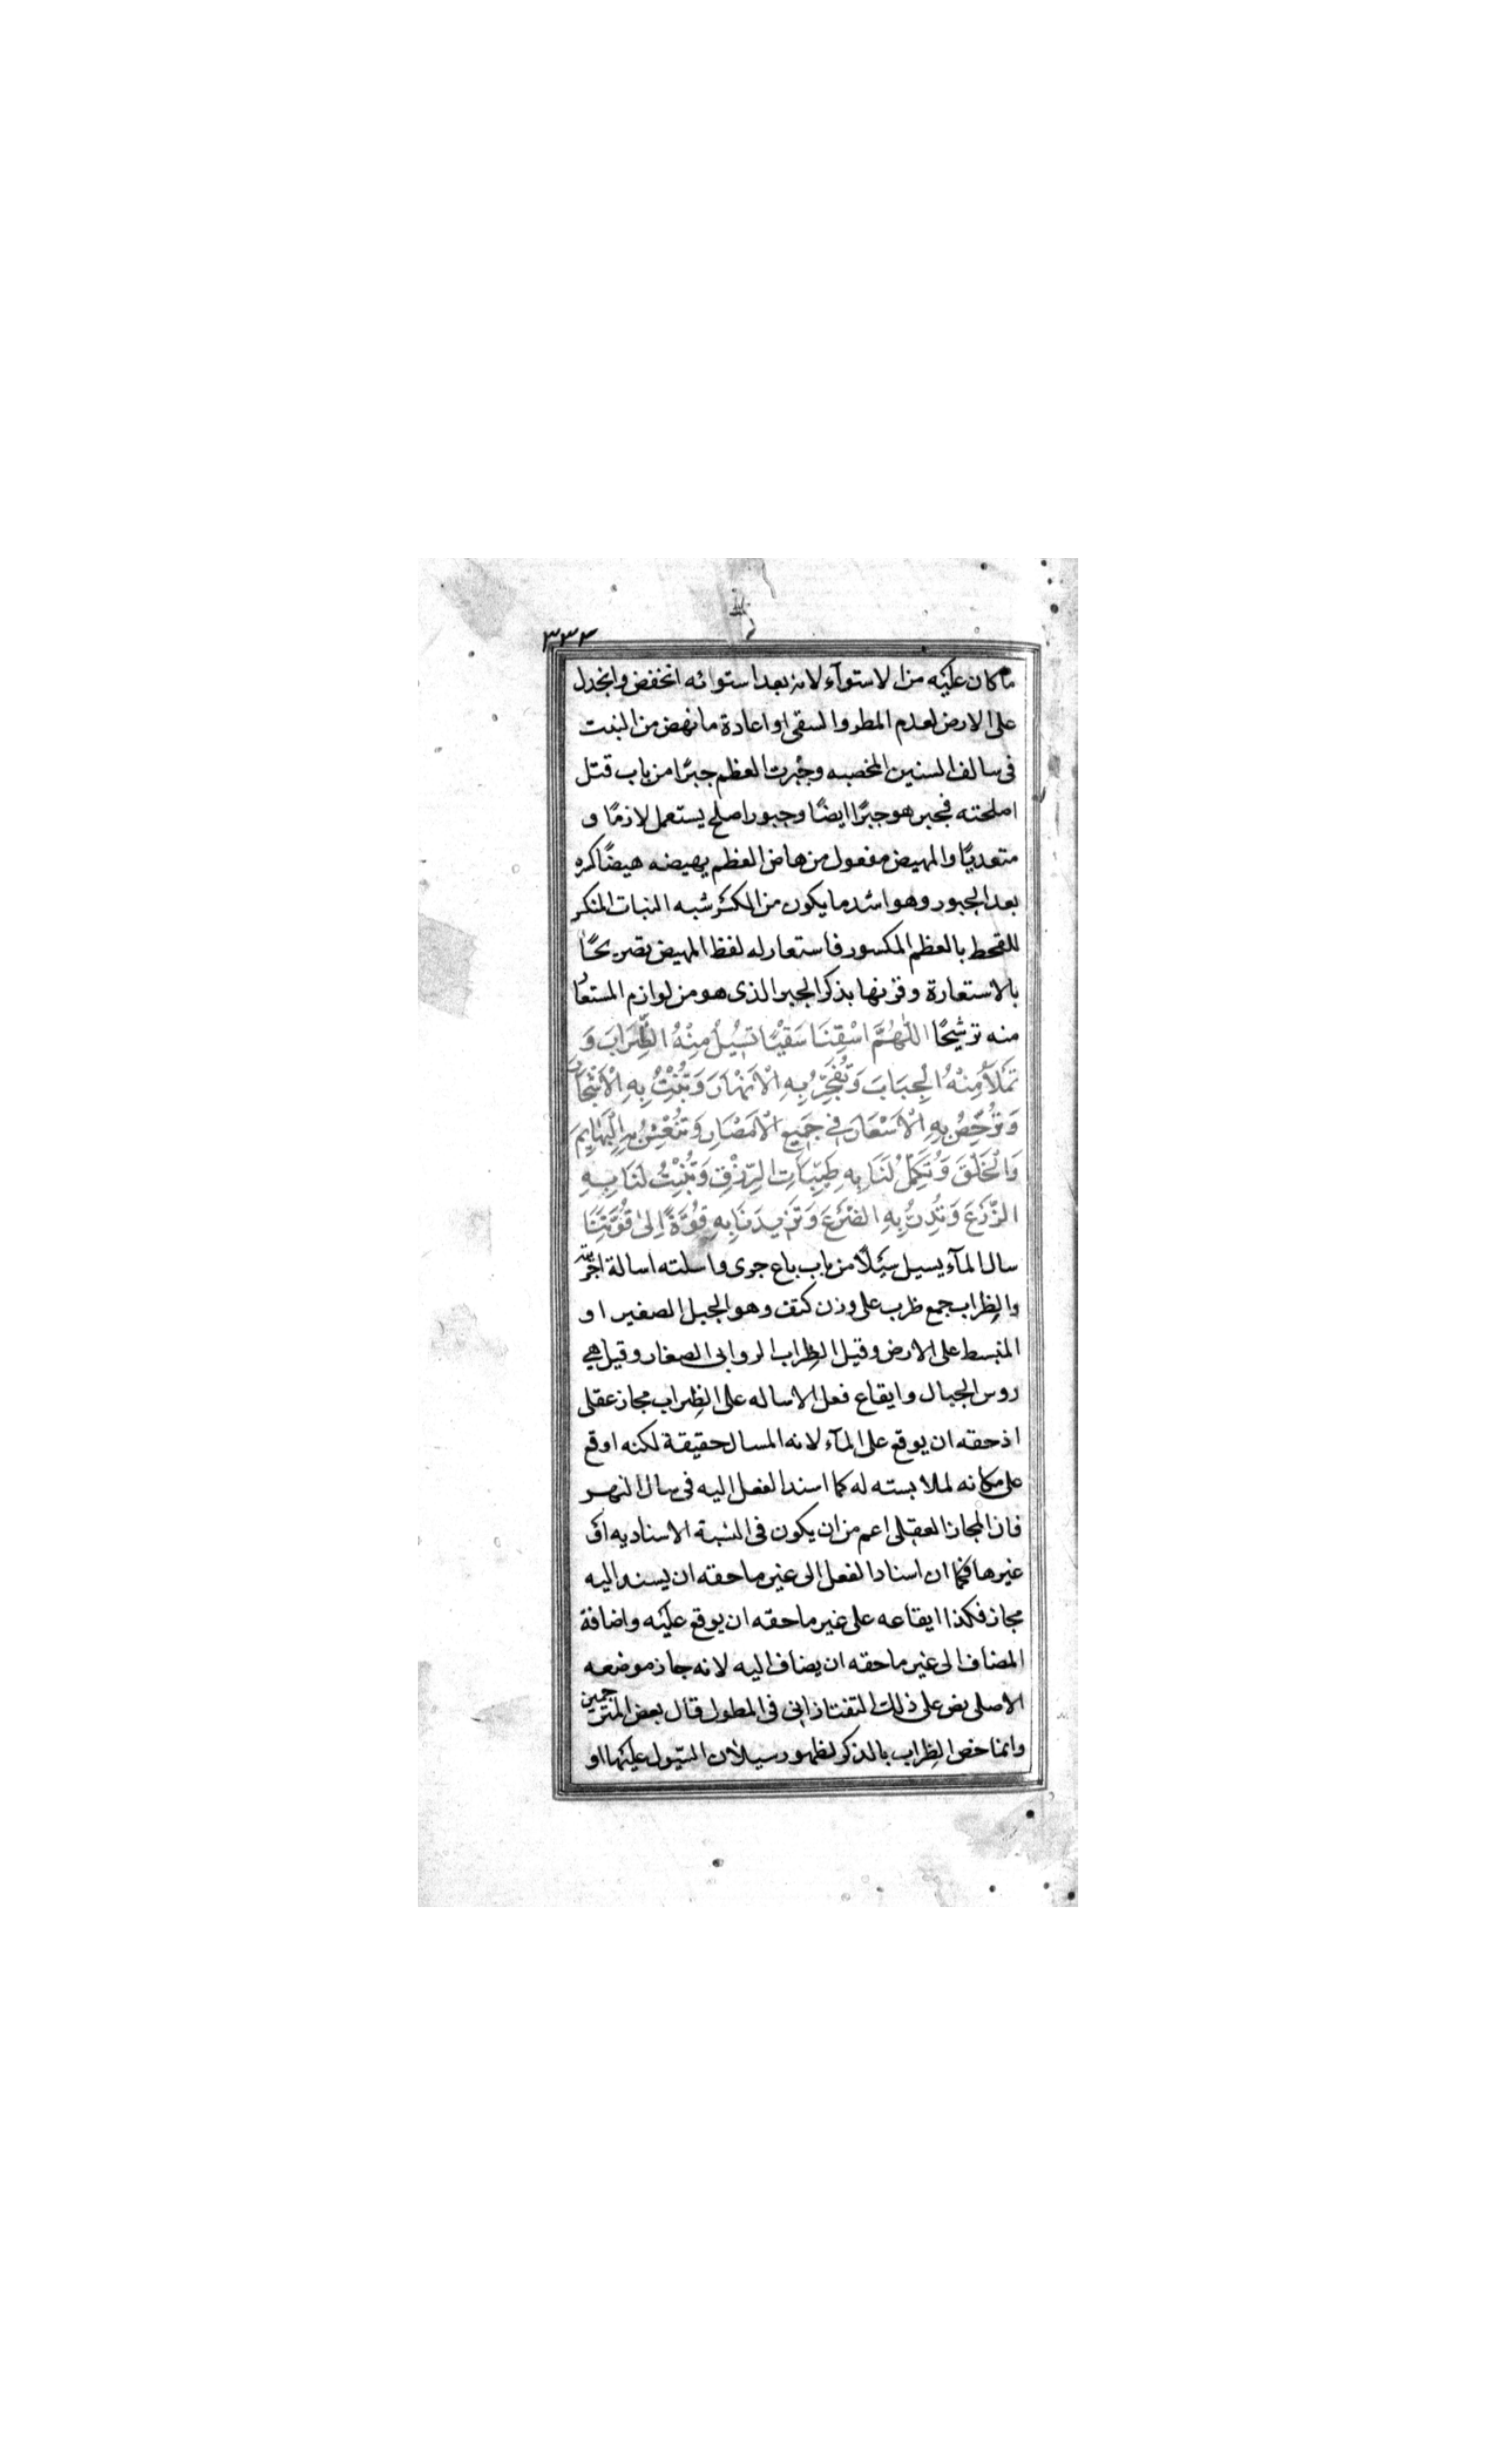 ٣٣٢
ما كان عليه من الاستوآء لانه بعد استوائه انخفض وانجدل
على الارض لعدم المطر والسقى او اعادة ما نهض من النبت
فى سالف السنين المخصبه وجبرت العظم جبرًا من باب قتل
اصلحته فجبر هو جبرًا ايضًا وجبورا صلح يستعمل لازمًا و
متعديًا والمهيض مفعول من هاض العظم يهيضه هيضًا كسره
بعد الجبور وهو اشد ما يكون من الكسر شبه النبات المنكسر
للقحط بالعظم المكسور فاستعار له لفظ المهيض تصريحًا
بالاستعارة وقرنها بذكر الجبر الذى هو من لوازم المستعار
منه ترشيحًا اللّٰهُمَّ اسْقِنَا سَقْيًا تُسِيلُ مِنْهُ الظِّرَابَ وَ
تَمْلَأُ مِنْهُ الْجِبَابَ وَتُفَجِّرُ بِهِ الْاَنْهَارَ وَتُنْبِتُ بِهِ الْاَشْجَارَ
وَتُرْخِصُ بِهِ الْاَسْعَارَ فِي جَمِيعِ الْاَمْصَارِ وَتَنْعَشُ بِهِ الْبَهَايِمَ
وَالْخَلْقَ وَتُكْمِلُ لَنَا بِهِ طَيِّبَاتِ الرِّزْقِ وَتُنْبِتُ لَنَا بِهِ
الزَّرْعَ وَتُدِرُّ بِهِ الضَّرْعَ وَتَزِيدُنَا بِهِ قُوَّةً اِلىٰ قُوَّتِنَا
سال المآء يسيل سَيْلاً من باب باع جرى واسلته اسالة اجريته
والظِراب جمع ظرب على وزن كتف وهو الجبل الصغير او
المنبسط على الارض وقيل الظِراب الروابى الصغار وقيل هي
روس الجبال وايقاع فعل الاساله على الظِراب مجاز عقلى
اذ حقه ان يوقع على المآء لانه المسال حقيقة لكنه اوقع
على مكانه لملابسته له كما اسند الفعل اليه فى سال النهر
فان المجاز العقلى اعم من ان يكون فى النسبة الاسناديه او
غيرها فكما ان اسناد الفعل الى غير ما حقه ان يسند اليه
مجاز فكذا ايقاعه على غير ما حقه ان يوقع عليه واضافة
المضاف الى غير ما حقه ان يضاف اليه لانه جاز موضعه
الاصلى نص على ذلك التفتازانى فى المطول قال بعض المترجمين
وانما خص الظِراب بالذكر لظهور سيلان السّيول عليها او